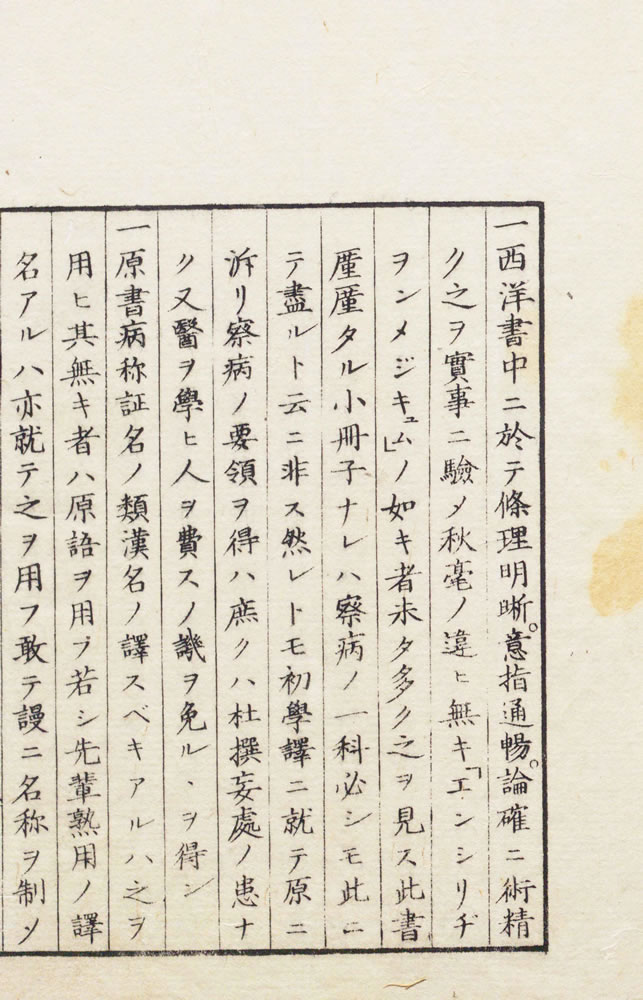 一西洋書中ニ於テ條理明晰。意指通暢。論確ニ術精
ク之ヲ實事ニ驗メ秋毫ノ違ヒ無キ「エンシリヂ
ヲンメジキュム」ノ如キ者未タ多ク之ヲ見ス此書
厪厪タル小冊子ナレハ察病ノ一科必シモ此ニ
テ盡ルト云ニ非ス然レトモ初學譯ニ就テ原ニ
泝リ察病ノ要領ヲ得ハ庶クハ杜撰妄處ノ患ナ
ク又醫ヲ學ヒ人ヲ費スノ譏ヲ免ルヽヲ得ン
一原書病称証名ノ類漢名ノ譯スベキアルハ之ヲ
用ヒ其無キ者ハ原語ヲ用フ若シ先輩熟用ノ譯
名アルハ亦就テ之ヲ用フ敢テ謾ニ名称ヲ制メ